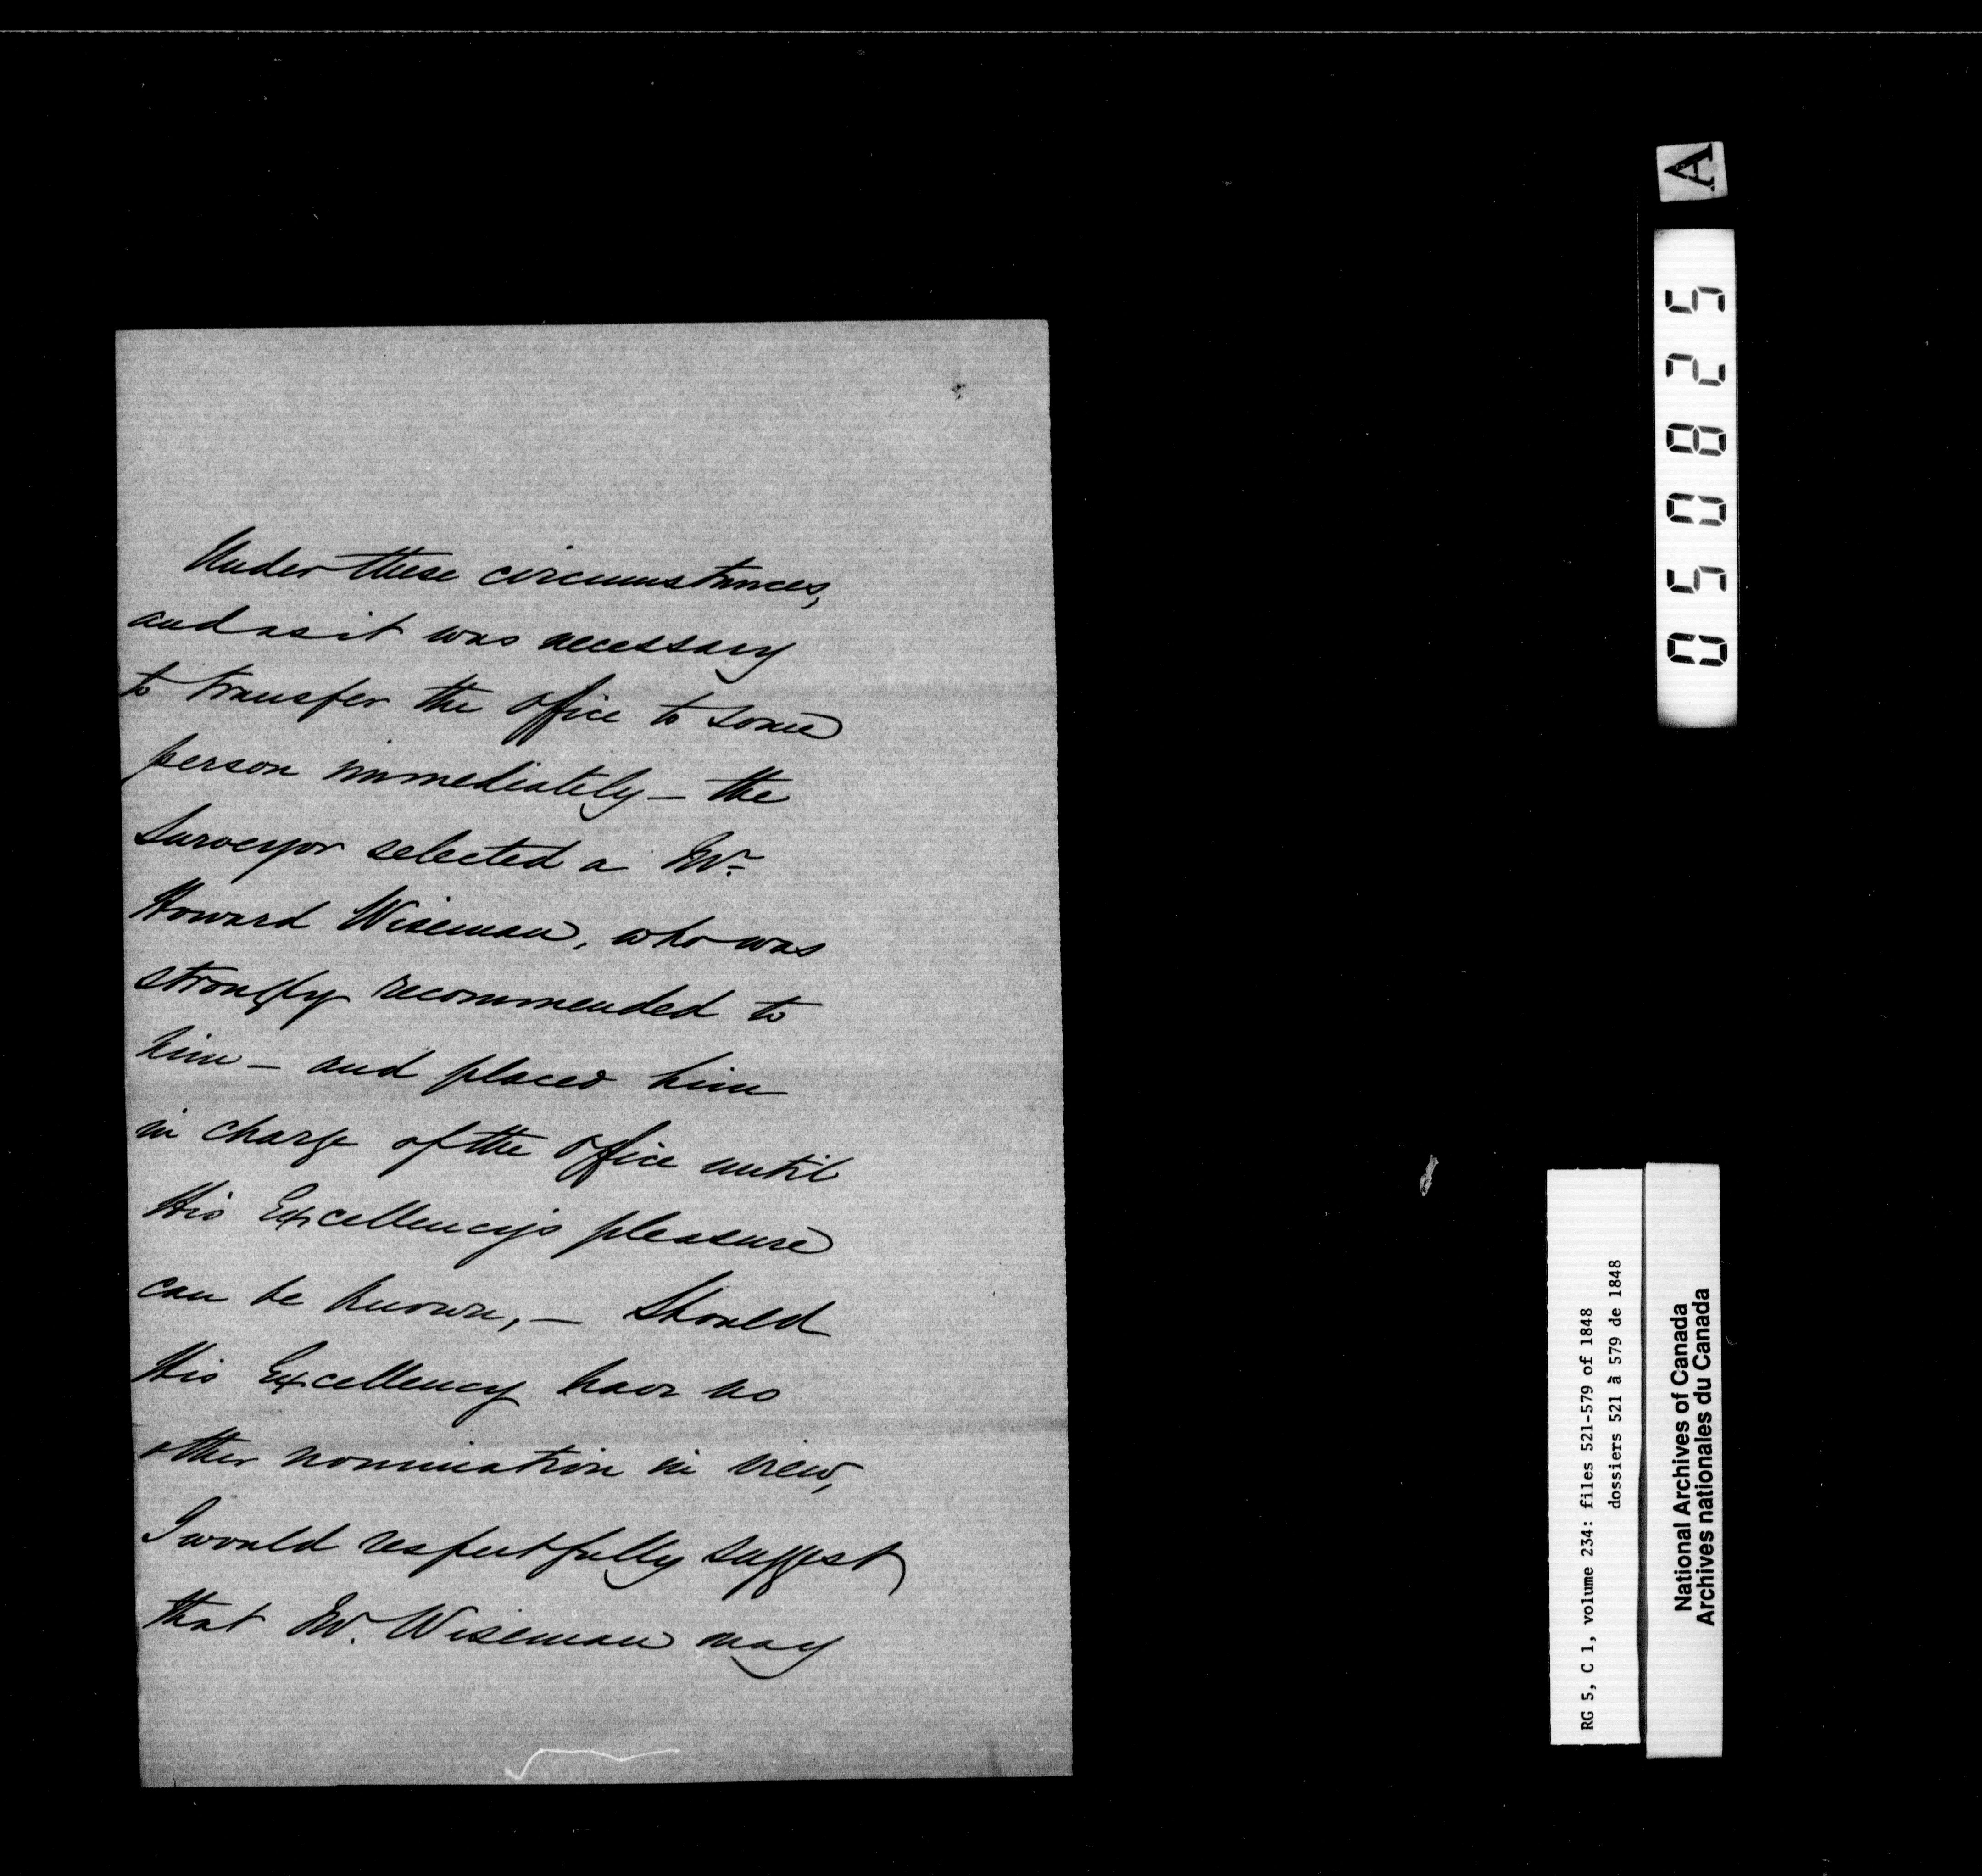 Under these circumstances,
and as it was necessary
to transfer the office to some
person immediately — the
Surveyor selected a Mr.
Howard Wiseman, who was
strongly recommended to
him — and placed him
in charge of the office until
His Excellency's pleasure
can be known, — Should
His Excellency have no
other nomination in view,
I would respectfully suggest
that Mr. Wiseman may
A
050825
RG 5, C 1, volume 234: files 521-579 of 1848
dossiers 521 à 579 de 1848
National Archives of Canada
Archives nationales du Canada